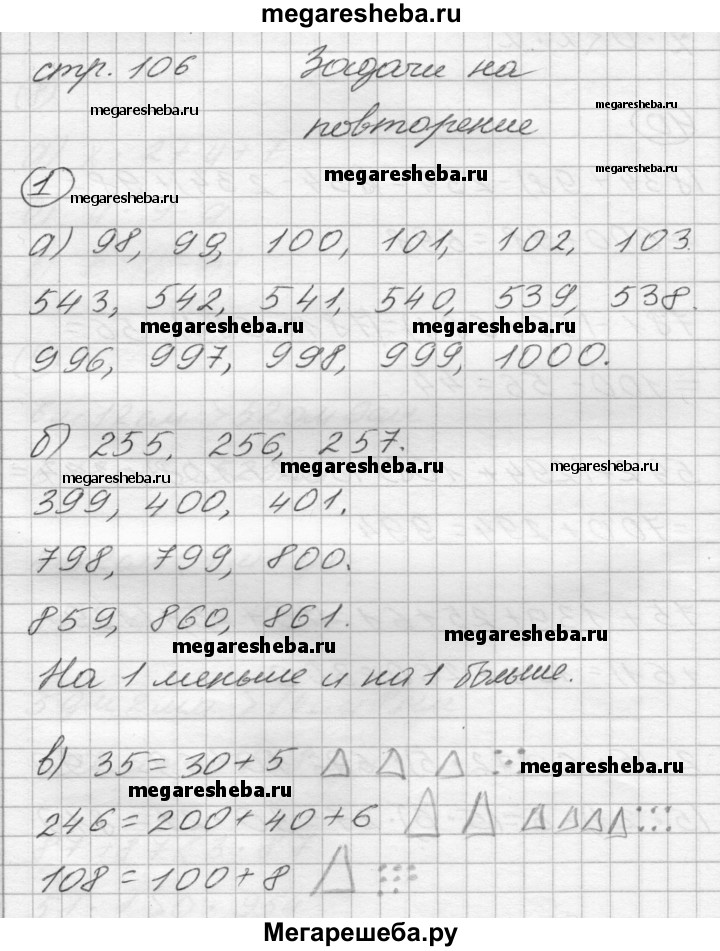 megaresheba.ru
стр. 106 Задачи на
megaresheba.ru megaresheba.ru
повторение
megaresheba.ru megaresheba.ru
1 megaresheba.ru
а) 98, 99, 100, 101, 102, 103.
543, 542, 541, 540, 539, 538.
megaresheba.ru megaresheba.ru
996, 997, 998, 999, 1000.
б) 255, 256, 257.
megaresheba.ru megaresheba.ru megaresheba.ru
399, 400, 401.
798, 799, 800.
859, 860, 861.
megaresheba.ru megaresheba.ru
На 1 меньше и на 1 больше.
в) 35 = 30 + 5
megaresheba.ru
megaresheba.ru
246 = 200 + 40 + 6
108 = 100 + 8
Мегарешеба.ру